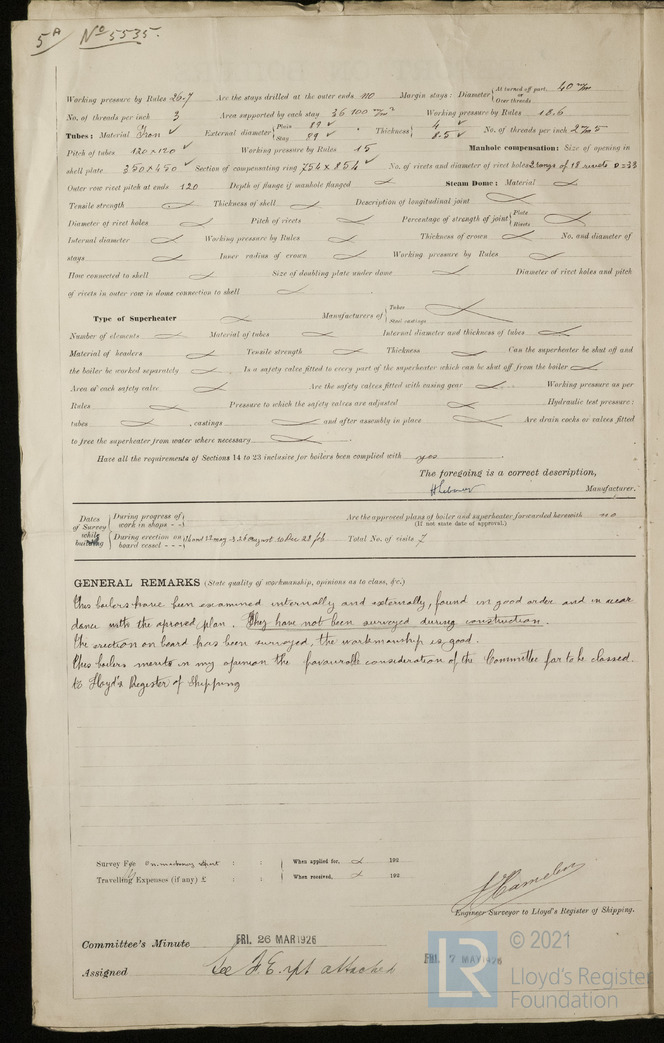 5A Nº 5535.
Working pressure by Rules 26.7 Are the stays drilled at the outer ends no Margin stays: Diameter { At turned off part, or Over threads 40 m/m
No. of threads per inch 3 Area supported by each stay 36100 m/m² Working pressure by Rules 18.6
Tubes: Material Iron ✓ External diameter { Plain 89 ✓ Stay 89 ✓ Thickness { 4 ✓ 8.5 ✓ No. of threads per inch
Pitch of tubes 120 x 120 ✓ Working pressure by Rules 15 Manhole compensation: Size of opening in
shell plate 350 x 450 ✓ Section of compensating ring 754 x 854 ✓ No. of rivets and diameter of rivet holes 2 rangs of 18 rivets D=33
Outer row rivet pitch at ends 120 Depth of flange if manhole flanged Steam Dome: Material
Tensile strength Thickness of shell Description of longitudinal joint
Diameter of rivet holes Pitch of rivets Percentage of strength of joint { Plate Rivets
Internal diameter Working pressure by Rules Thickness of crown No. and diameter of
stays Inner radius of crown Working pressure by Rules
How connected to shell Size of doubling plate under dome Diameter of rivet holes and pitch
of rivets in outer row in dome connection to shell
Type of Superheater Manufacturers of { Tubes Steel castings
Number of elements Material of tubes Internal diameter and thickness of tubes
Material of headers Tensile strength Thickness Can the superheater be shut off and
the boiler be worked separately Is a safety valve fitted to every part of the superheater which can be shut off from the boiler
Area of each safety valve Are the safety valves fitted with easing gear Working pressure as per
Rules Pressure to which the safety valves are adjusted Hydraulic test pressure:
tubes , castings and after assembly in place Are drain cocks or valves fitted
to free the superheater from water where necessary
Have all the requirements of Sections 14 to 23 inclusive for boilers been complied with yes
The foregoing is a correct description,
Manufacturer.
Dates of Survey while building { During progress of work in shops - - Are the approved plans of boiler and superheater forwarded herewith no
(If not state date of approval.)
During erection on board vessel - - - Total No. of visits 7
GENERAL REMARKS (State quality of workmanship, opinions as to class, &c.)
This boilers have been examined internally and externally, found in good order and in accor
dance with the aproved plan. They have not been surveyed during construction.
The erection on board has been surveyed, the workmanship is good.
This boilers merits in my opinion the favourable consideration of the Committee for to be classed.
to Lloyd's Register of Shipping
Survey Fee On machinery report : : When applied for, 192
Travelling Expenses (if any) £ : : When received, 192
Engineer Surveyor to Lloyd's Register of Shipping.
Committee's Minute FRI. 26 MAR 1926
FRI. 7 MAY 1926
Assigned See F.E. rpt attached
LR © 2021
Lloyd's Register
Foundation